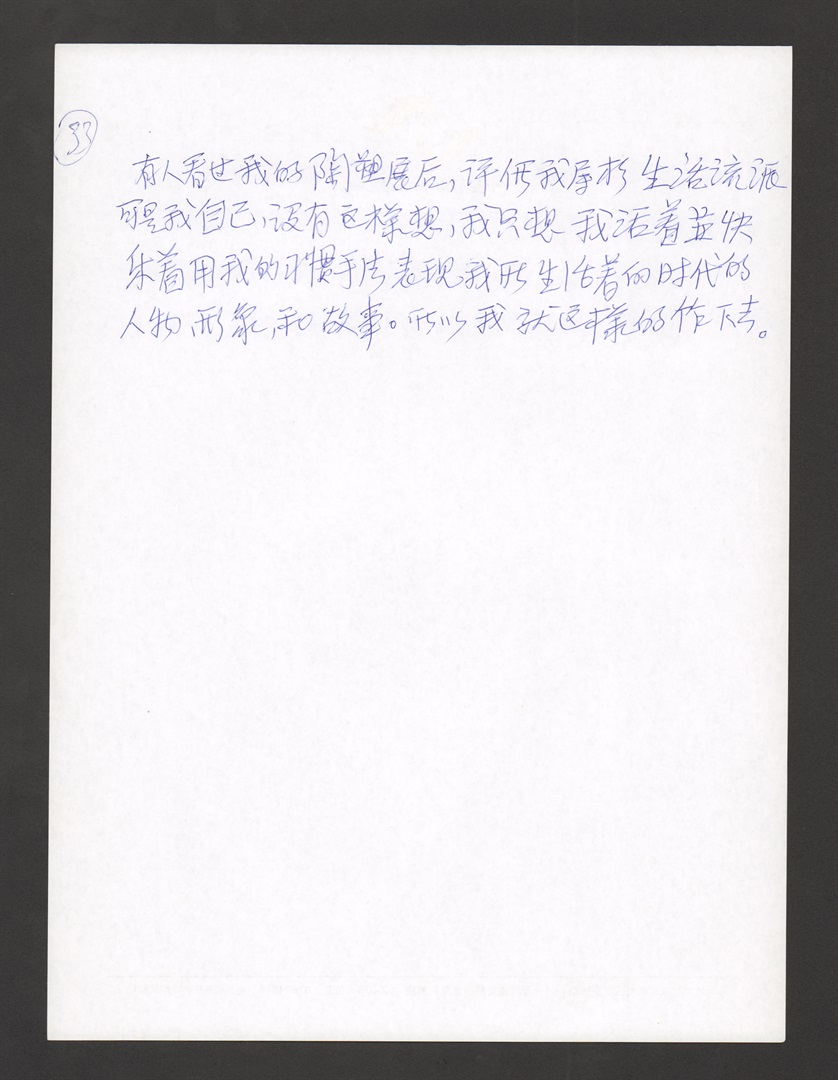 33
有人看过我的陶塑展后,评价我属于生活流派
可是我自己,没有这样想,我只想我活着並快
乐着用我的习惯手法表现我所生活着的时代的
人物,形象,和故事。所以我就这样的作下去。